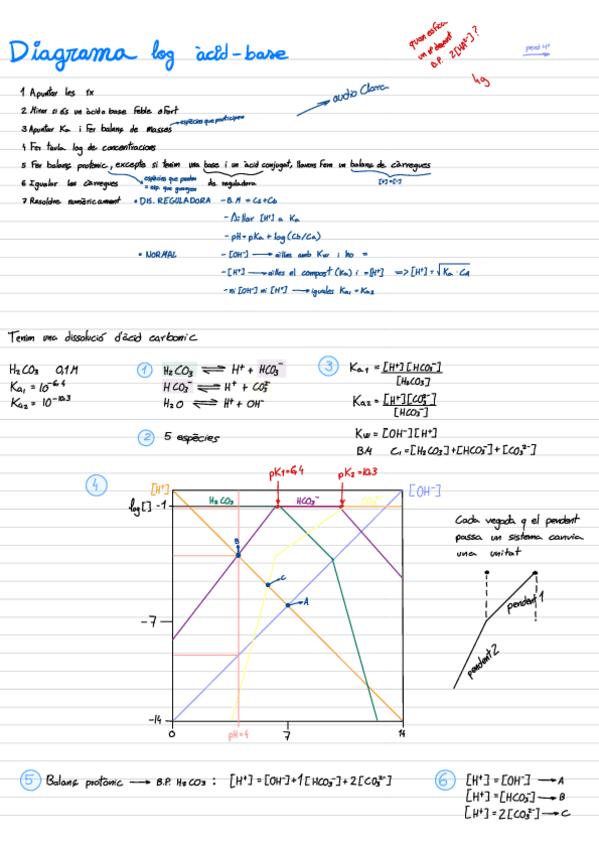 Diagrama log àcid-base
quan esfica
un 2 davant
B.P. 2[HA²⁻]?
4g
1 Apuntar les rx
2 Mirar si és un àcid o base feble o fort
3 Apuntar Ka i Fer balanç de masses
espècies que participen
audio Clara
4 Fer taula log de concentracions
5 Fer balanç protònic, excepte si tenim una base i un àcid conjugat, llavors fem un balanç de càrregues
6 Igualar les càrregues
espècies que perden
= esp. que guanyen
dis. reguladora
[+]=[-]
7 Resoldre numèricament
• DIS. REGULADORA
- B.M = Cs+Cb
- Aïllar [H⁺] a Ka
- pH = pKa + log(Cb/Ca)
• NORMAL
- [OH⁻] → aïlles amb Kw i ho =
- [H⁺] → aïlles el compost (Ka) i = [H⁺] => [H⁺] = √Ka · Ca
- ni [OH⁻] ni [H⁺] → iguales Ka₁ = Ka₂
Tenim una dissolució d'àcid carbonic
H₂CO₃ 0,1M
Ka₁ = 10⁻⁶·⁴
Ka₂ = 10⁻¹⁰·³
1 H₂CO₃ ⇌ H⁺ + HCO₃⁻
HCO₃⁻ ⇌ H⁺ + CO₃²⁻
H₂O ⇌ H⁺ + OH⁻
2 5 espècies
3 Ka₁ = [H⁺][HCO₃⁻]
[H₂CO₃]
Ka₂ = [H⁺][CO₃²⁻]
[HCO₃⁻]
Kw = [OH⁻][H⁺]
B.M C₁ = [H₂CO₃]+[HCO₃⁻]+[CO₃²⁻]
4
pK1=6,4
pK2=10,3
[H⁺]
[OH⁻]
log[] -1
H₂CO₃
HCO₃⁻
CO₃²⁻
B
C
A
-7
-14
0
pH=4
7
14
Cada vegada q el pendent
passa un sistema canvia
una unitat
pendent 1
pendent 2
5 Balanç protònic → B.P. H₂CO₃ : [H⁺] = [OH⁻]+1[HCO₃⁻]+2[CO₃²⁻]
6 [H⁺] = [OH⁻] → A
[H⁺] = [HCO₃⁻] → B
[H⁺] = 2[CO₃²⁻] → C